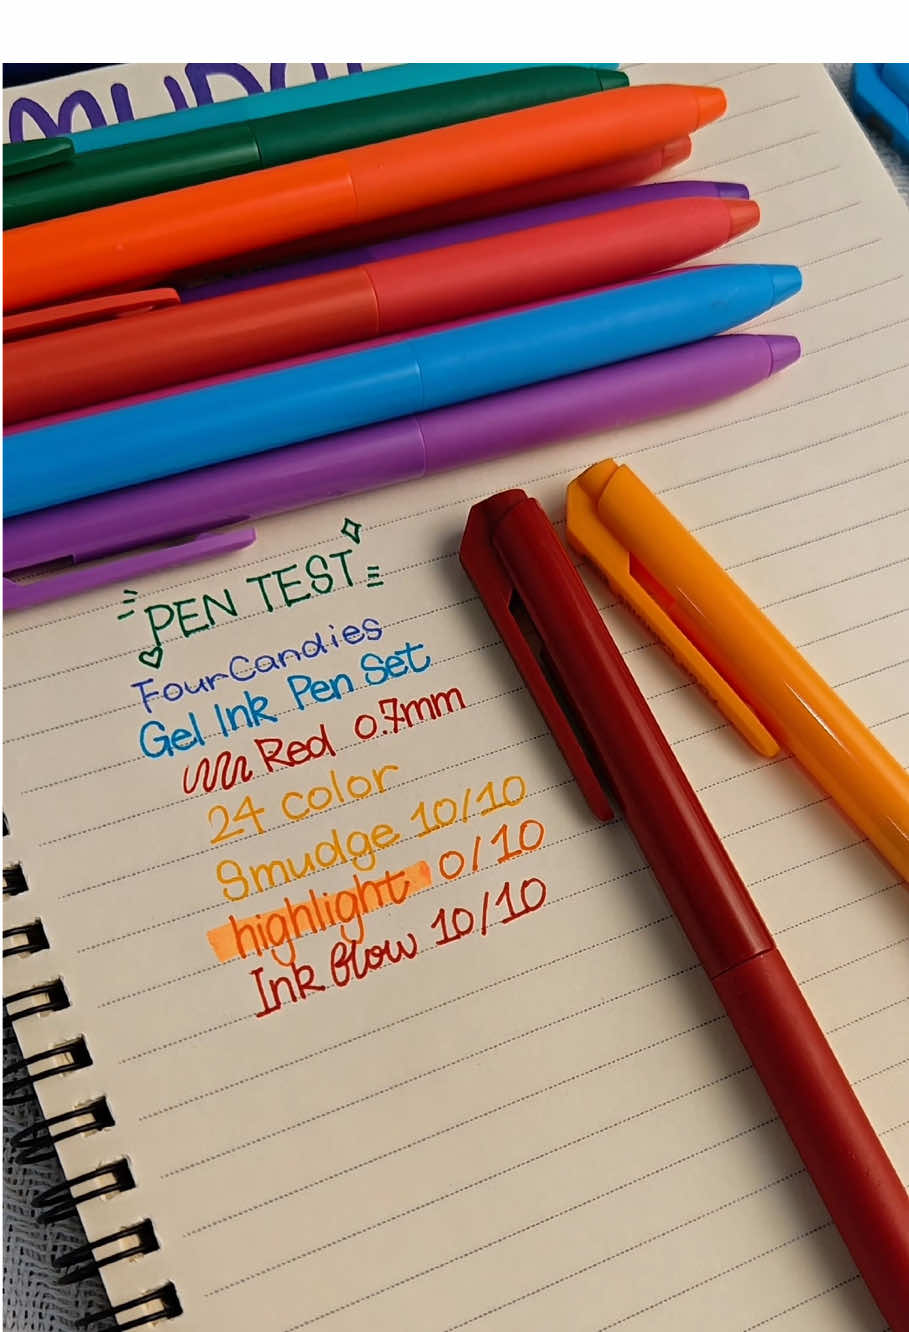 PEN TEST
FourCandies
Gel Ink Pen Set
Red 0.7mm
24 color
Smudge 10/10
highlight 0/10
Ink flow 10/10